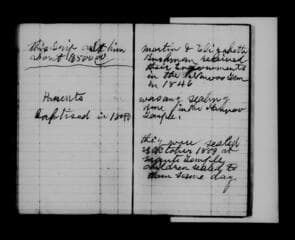 this trip cost him
about $500.00
Parents
Baptised in 1840
martin & Elizabeth
Bushman received
their Endowments
in the Nauvoo Tem
in 1846
was any sealing
done in the Nauvoo
Temple.
they were sealed
October 1889 at
Manti Temple
children sealed to
them same day